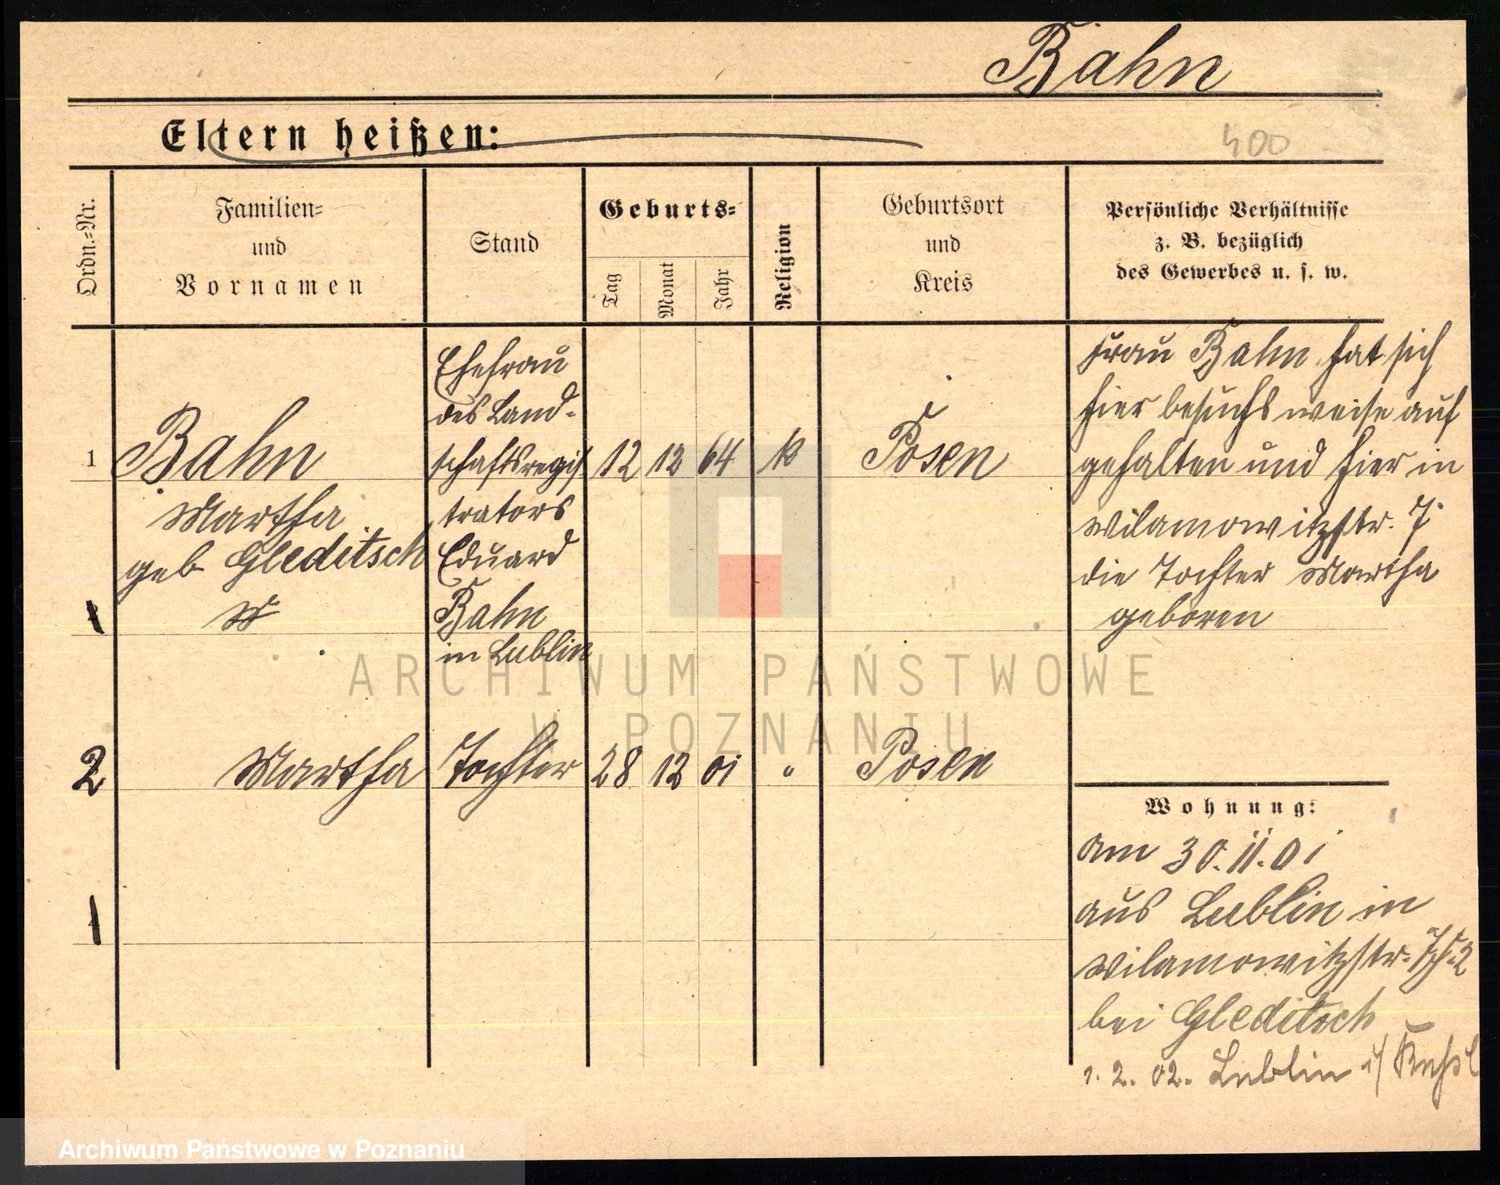 Bahn
Eltern heißen:
400
Ordn.-Nr.
Familien-
und
Vornamen
Stand
Geburts-
Tag
Monat
Jahr
Religion
Geburtsort
und
Kreis
Persönliche Verhältnisse
z. B. bezüglich
des Gewerbes u. s. w.
1
Bahn
Martha
geb Gleditsch
Ehefrau
des Land-
schaftsregis
trators
Eduard
Bahn
in Lublin
12 12 64 k Posen
Frau Bahn hat sich
hier besuchsweise auf
gehalten und hier in
Wilamowitzstr. 7
die Tochter Martha
geboren
1
2 Martha Tochter 28 12 01 " Posen
1
Wohnung:
am 30.11.01
aus Lublin in
Wilamowitzstr. 7
bei Gleditsch
1. 2. 02. Lublin
ARCHIWUM PAŃSTWOWE
W POZNANIU
Archiwum Państwowe w Poznaniu